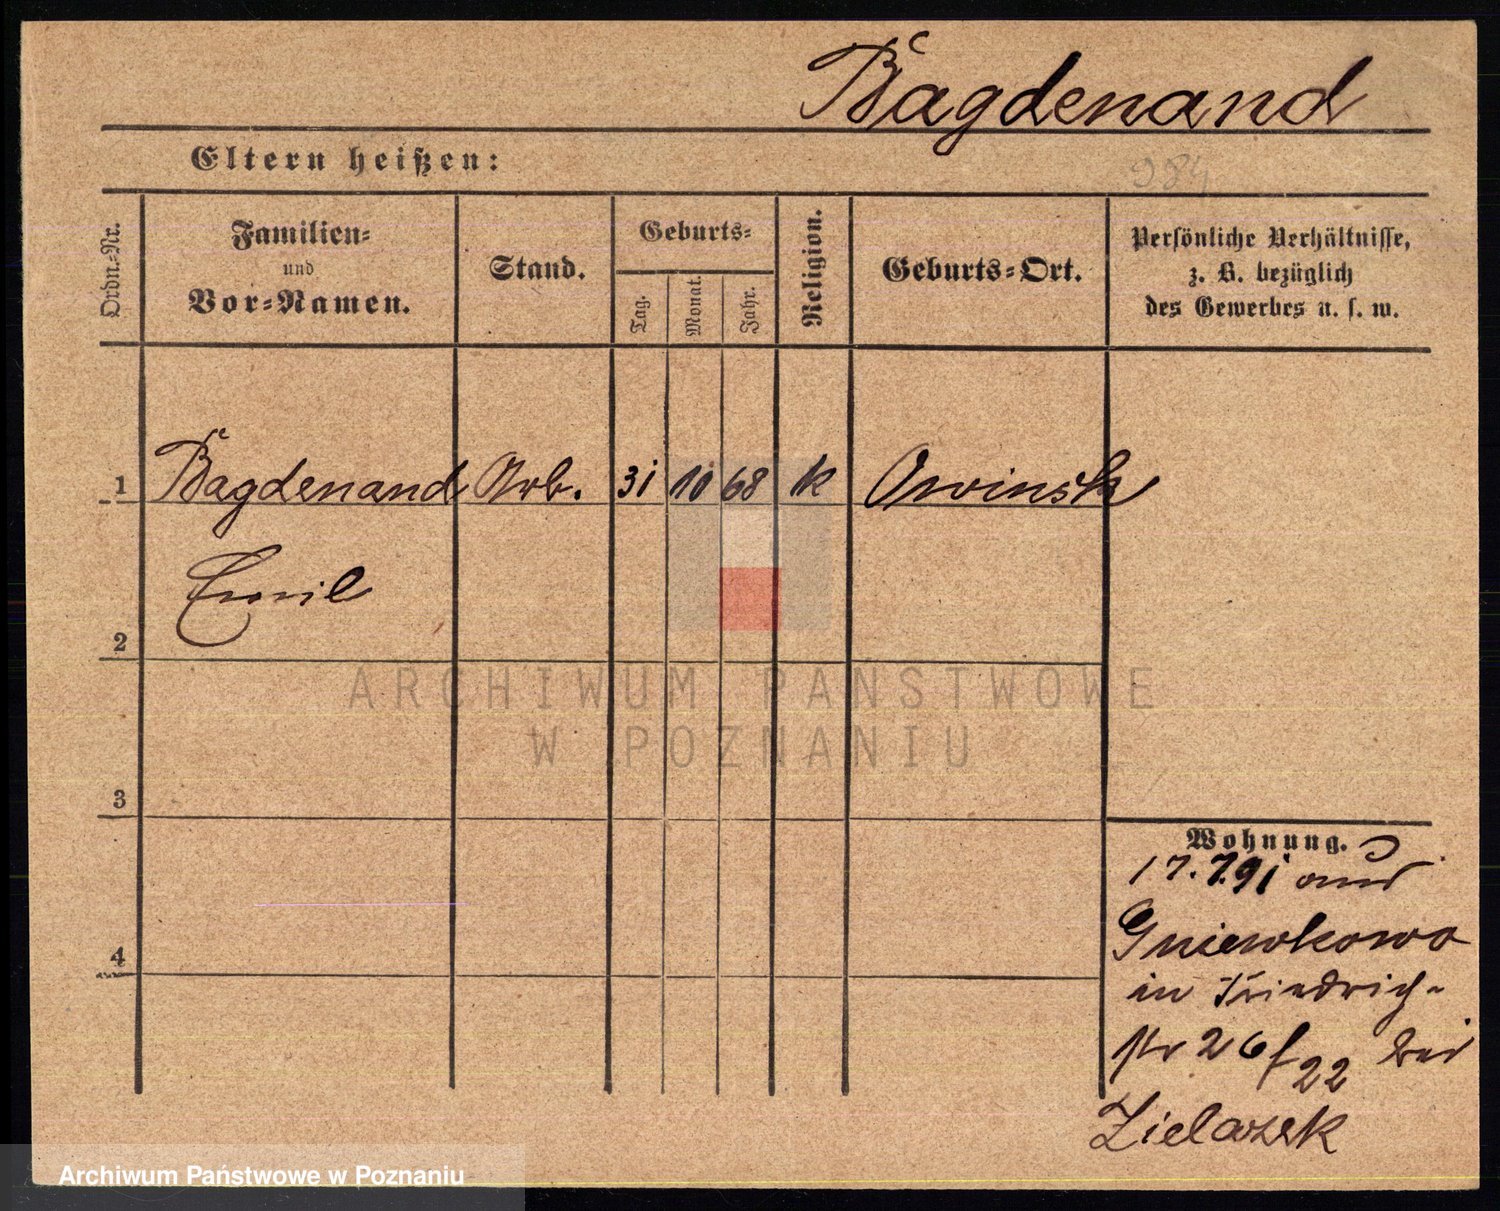 Bagdenand
Eltern heißen:
984
Ordn.-Nr.
Familien-
und
Vor-Namen.
Stand.
Geburts-
Tag.
Monat.
Jahr.
Religion.
Geburts-Ort.
Persönliche Verhältnisse,
z. B. bezüglich
des Gewerbes u. s. w.
1 Bagdenand Arb. 31 10 68 k Owinsk
Emil
2
3
4
Wohnung.
17.7.91 aus
Gniewkowo
in Friedrich-
str 26 f 22 bei
Zielazek
ARCHIWUM PAŃSTWOWE
W POZNANIU
Archiwum Państwowe w Poznaniu